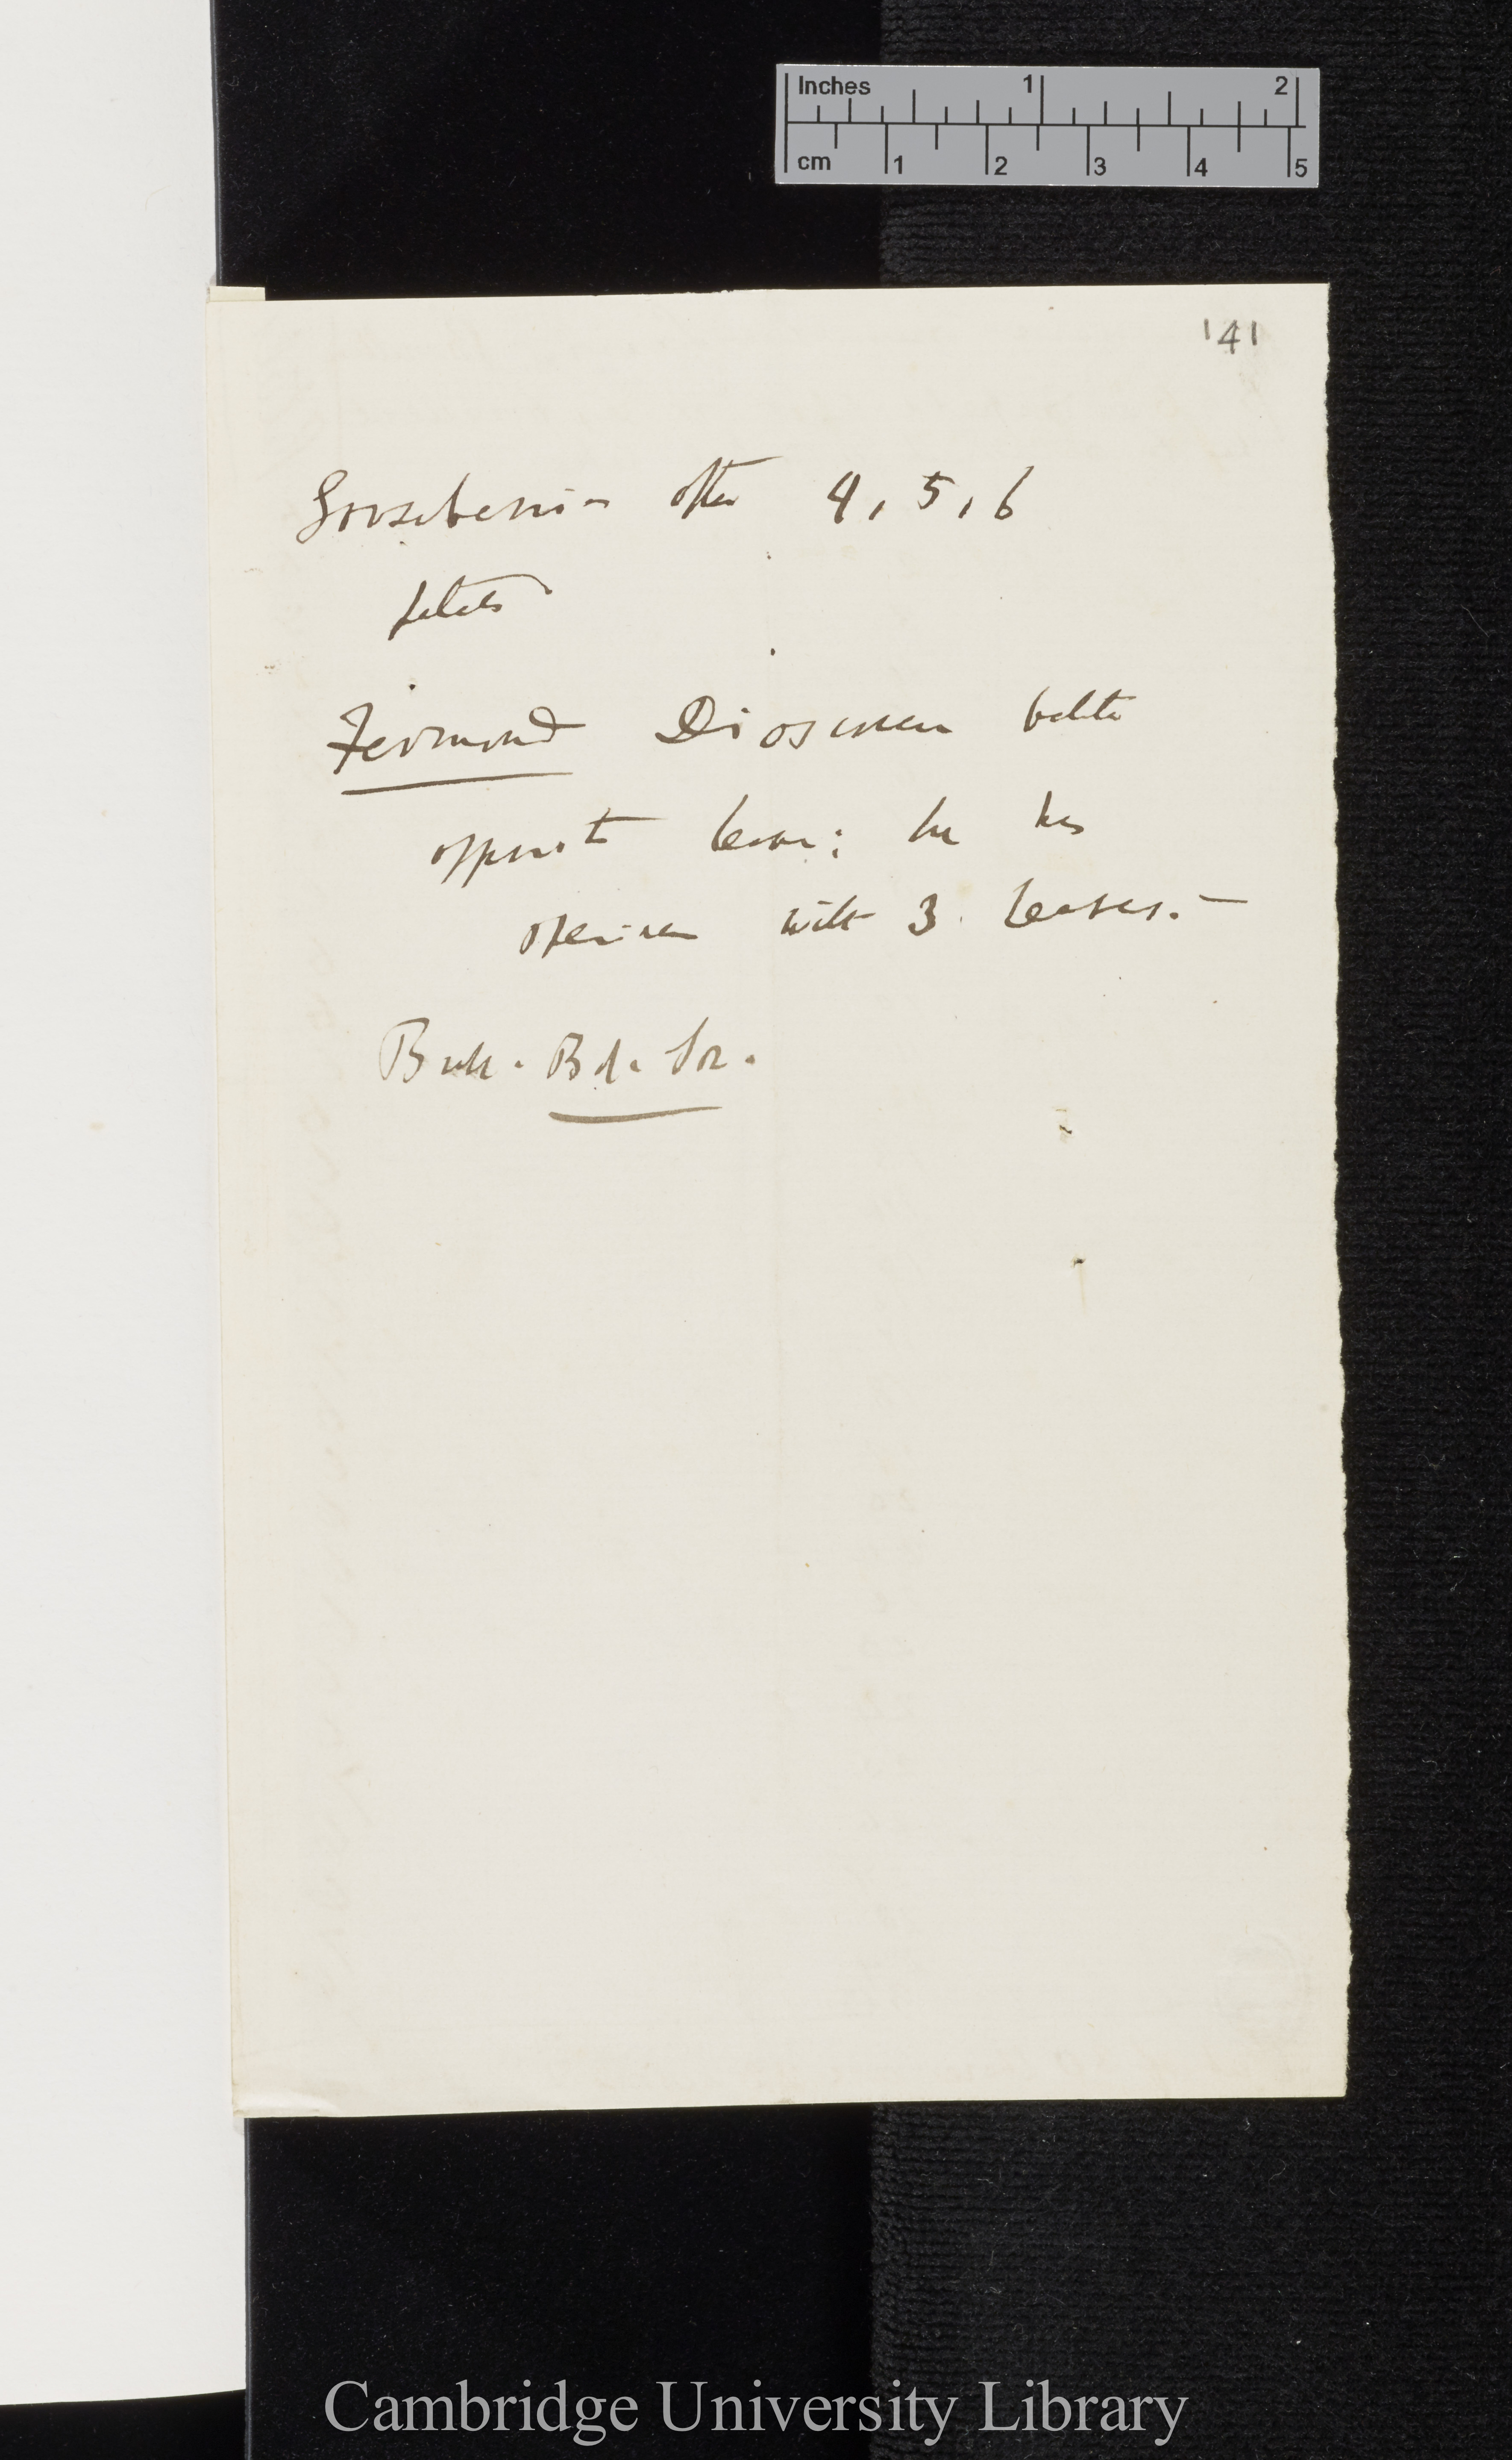 Inches 1 2
cm 1 2 3 4 5
141
Gooseberries often 4, 5, 6
petals
Fermond Dioscorea
opposite leaves; he has
specimen with 3 leaves.—
Bull. Bot. Soc.
Cambridge University Library